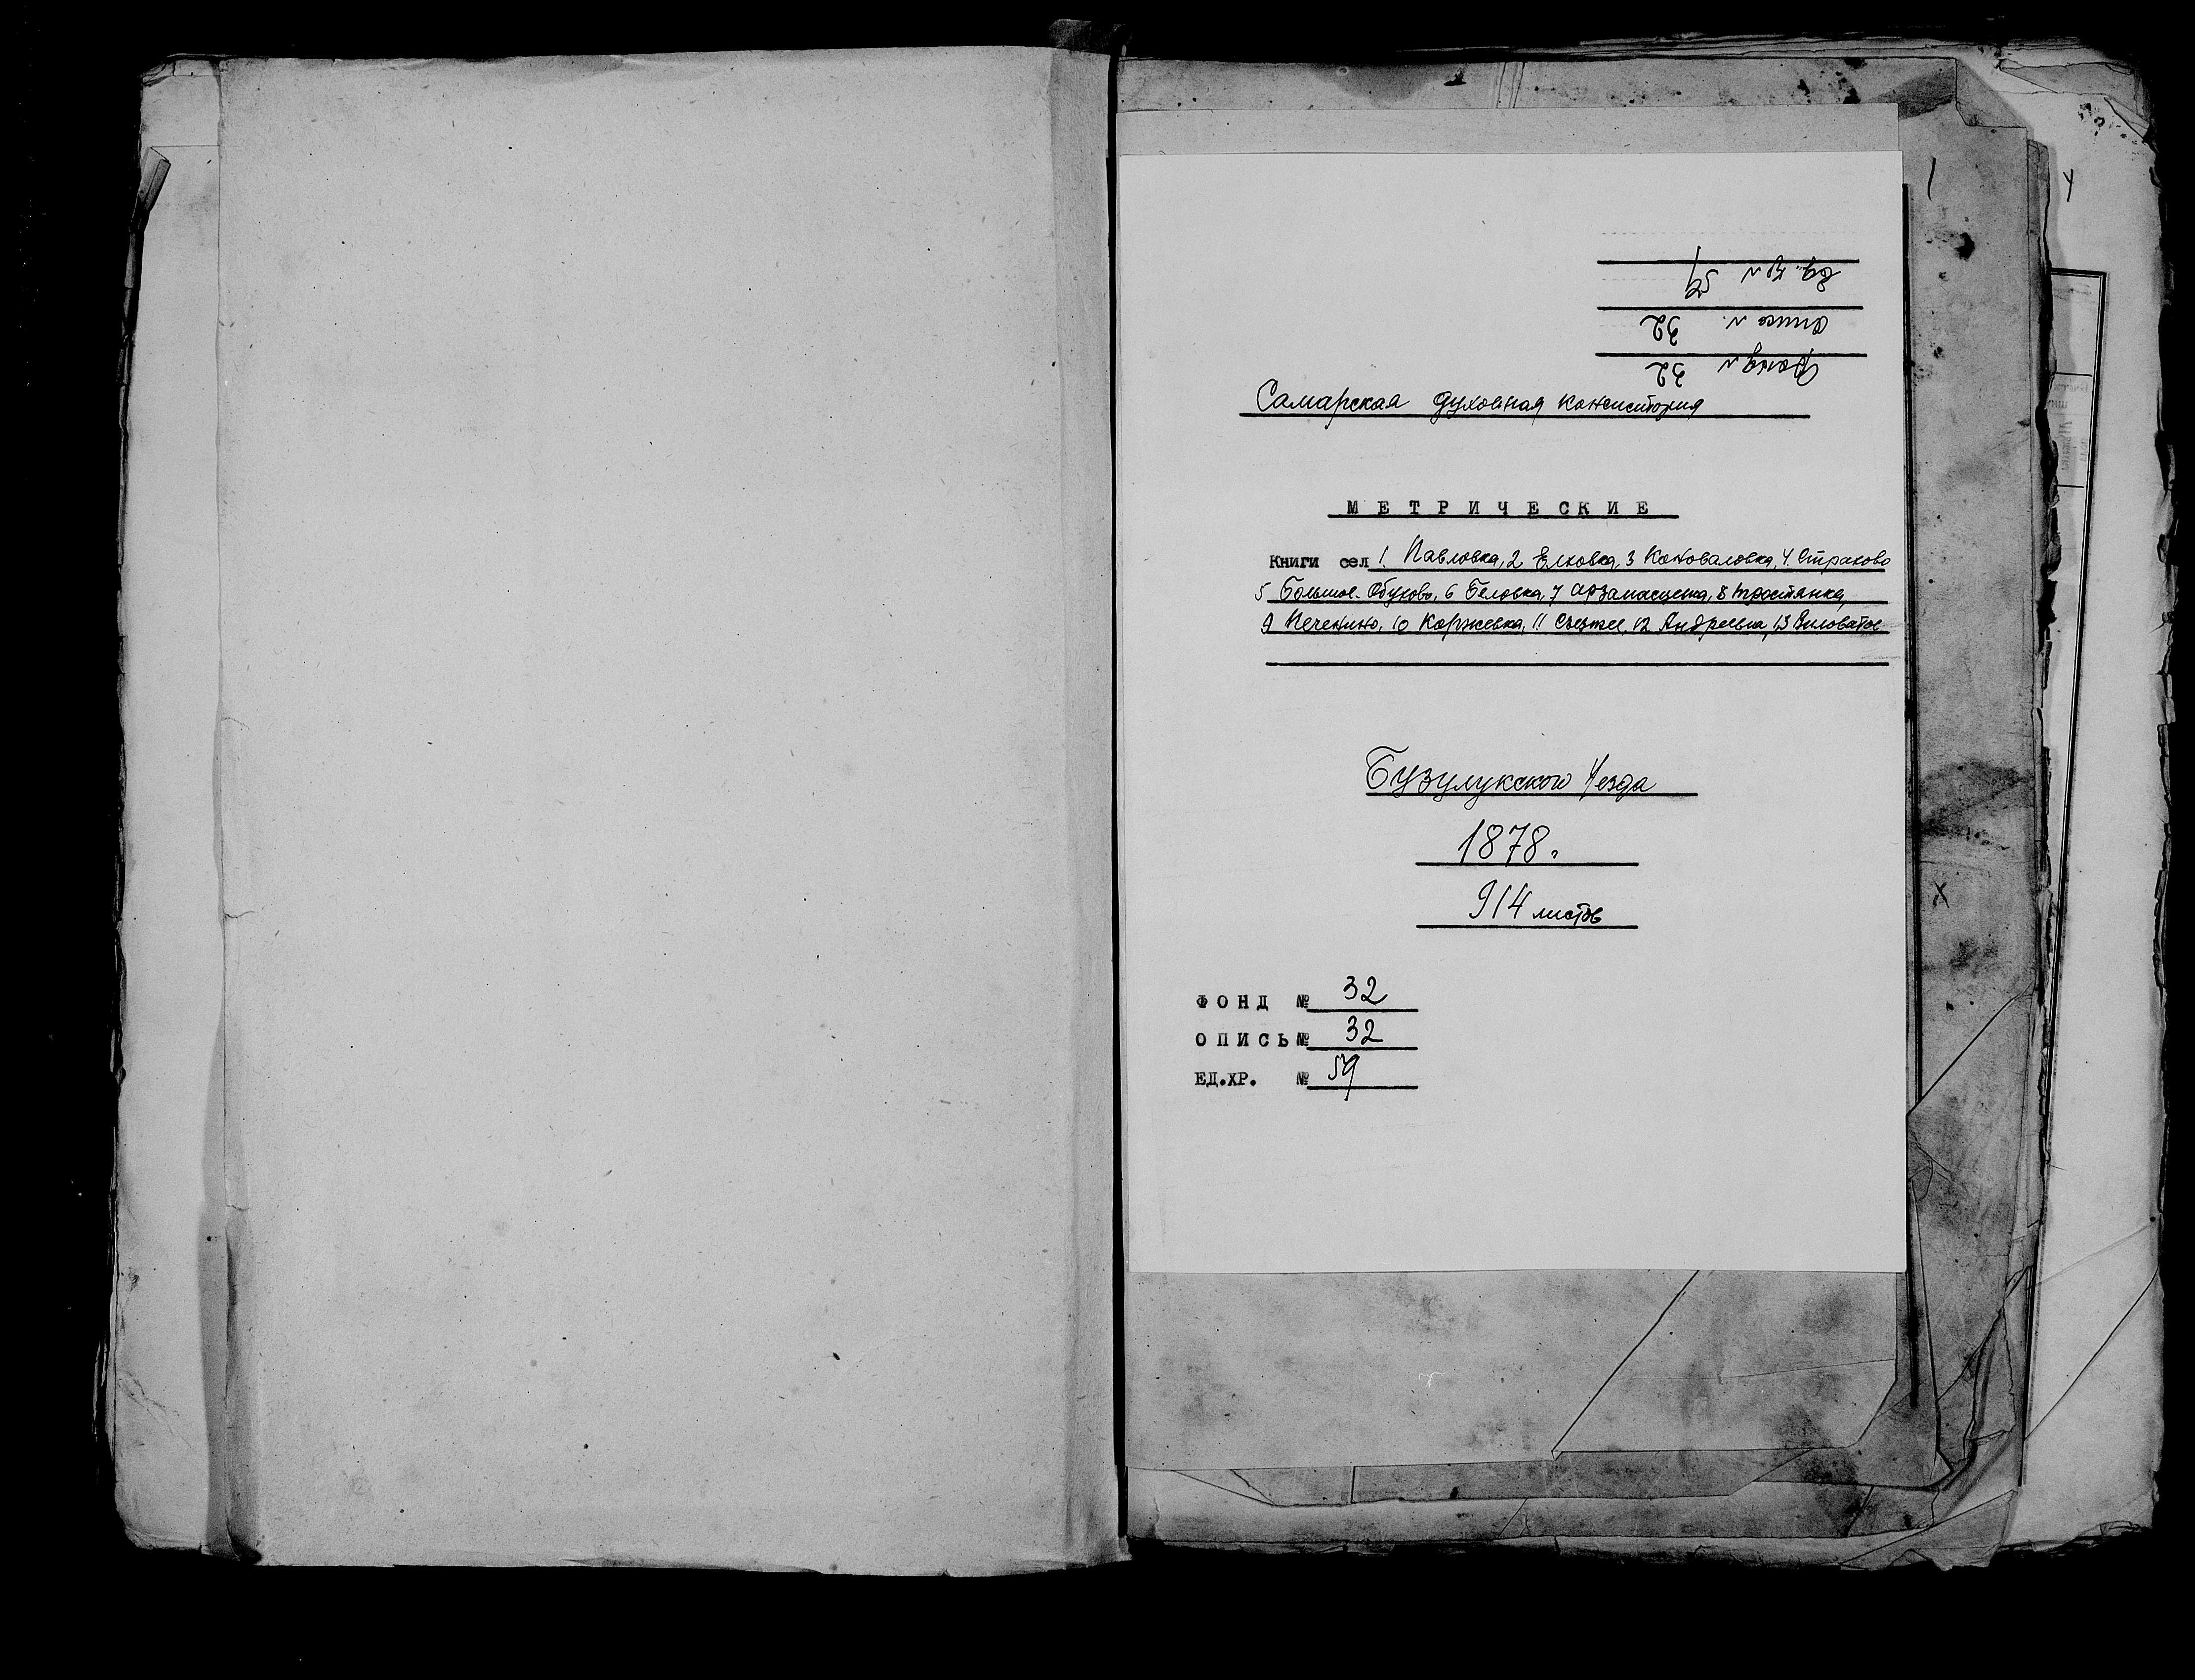 Ед. хр № 59
Опись №. 32
Фонд № 32
Самарская духовная консистория
МЕТРИЧЕСКИЕ
Книги сел 1. Павловка, 2 Елховка, 3 Коноваловка, 4. Страхово
5 Большое-Обухово, 6 Беловка, 7 Арзамасцевка, 8 Тростянка,
9 Печенино, 10 Коржевка, 11 Съезжее, 12 Андреевка, 13 Виловатое
Бузулукского Уезда
1878 г
914 листов
ФОНД № 32
ОПИСЬ № 32
ЕД.ХР. № 59